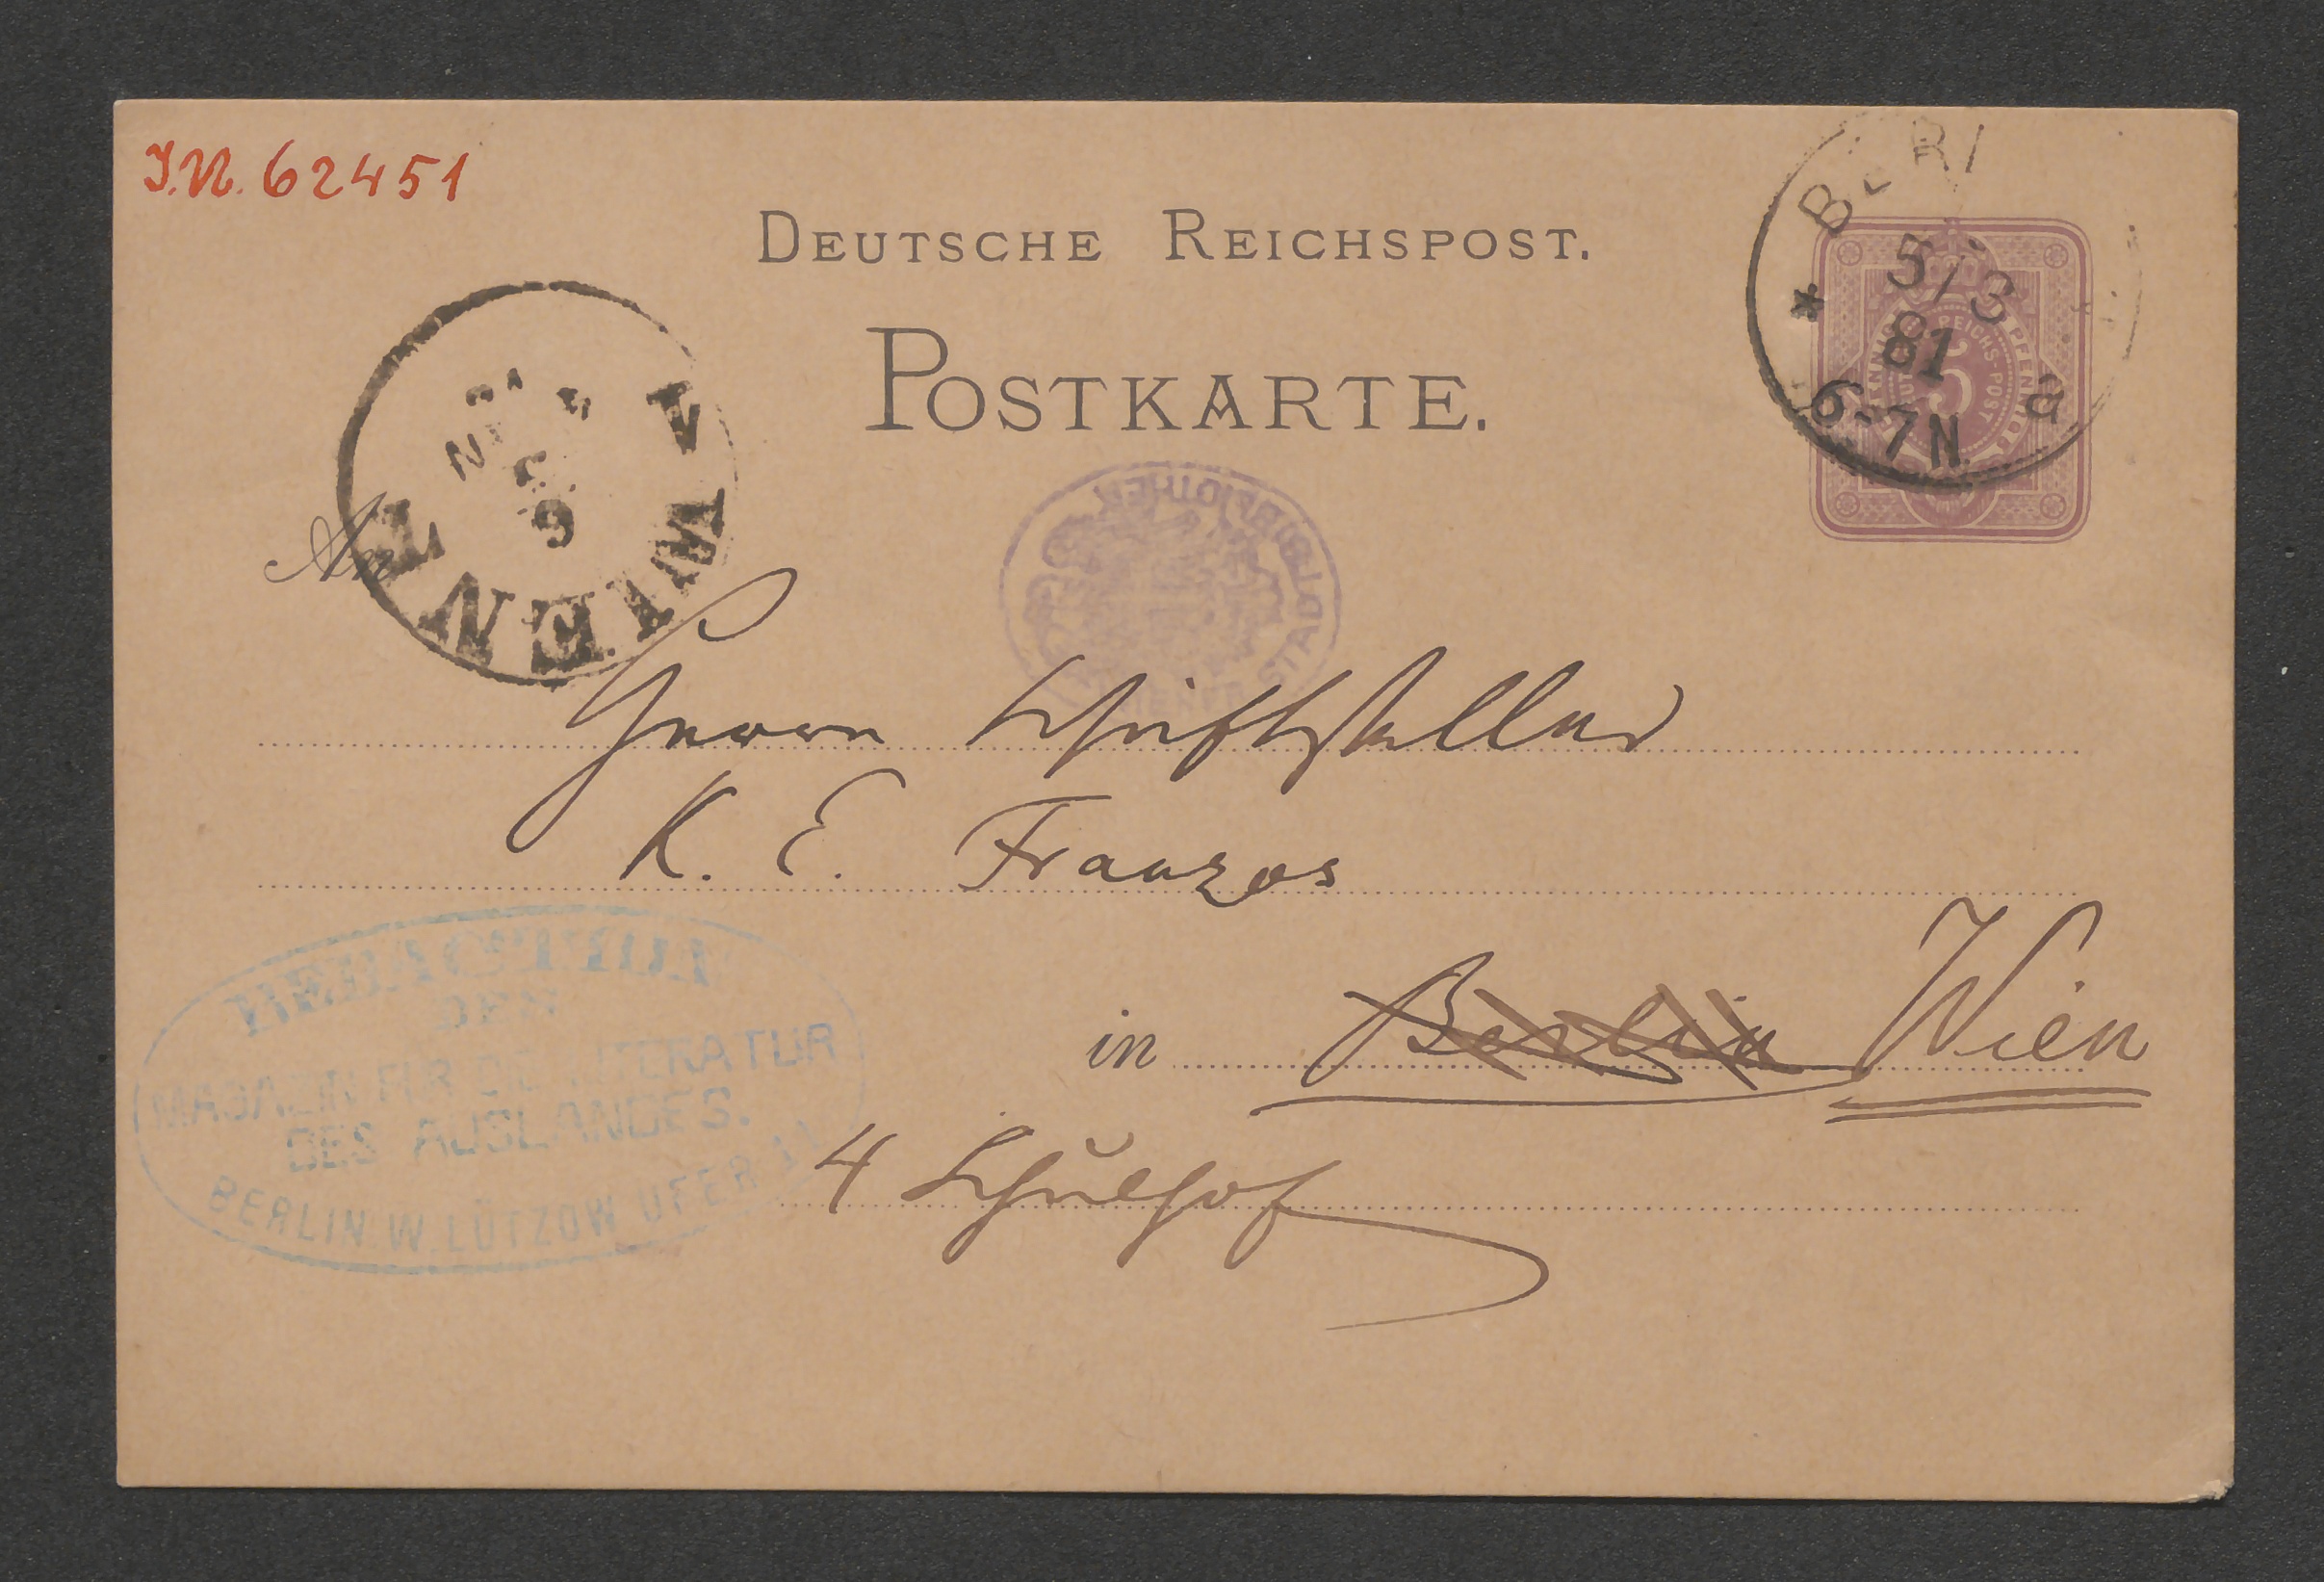 J.N. 62451
DEUTSCHE REICHSPOST.
POSTKARTE.
BERL
5/3
81
6-7N
a
WIEN
An
Herrn Schriftsteller
K. E. Franzos
in Berlin Wien
4 Schulhof
REDACTION
DES
MAGAZIN FÜR DIE LITERATUR
DES AUSLANDES.
BERLIN W. LÜTZOW UFER
WIENER STADTBIBLIOTHEK